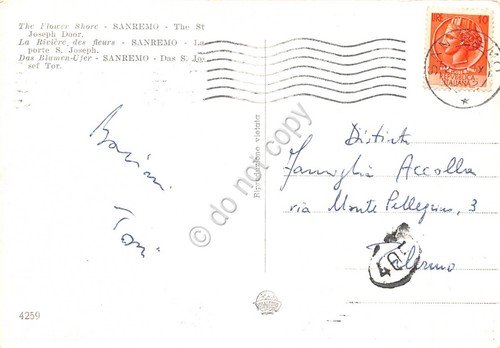 The Flower Shore - SANREMO - The St
Joseph Door.
La Rivière des fleurs - SANREMO - La
porte S. Joseph.
Das Blumen-Ufer - SANREMO - Das S. Jo
sef Tor.
LIRE 10
Bacioni
Riproduzione vietata
do not copy
Distinta
Famiglia Accolla
via Monte Pellegrino, 3
Palermo
4259